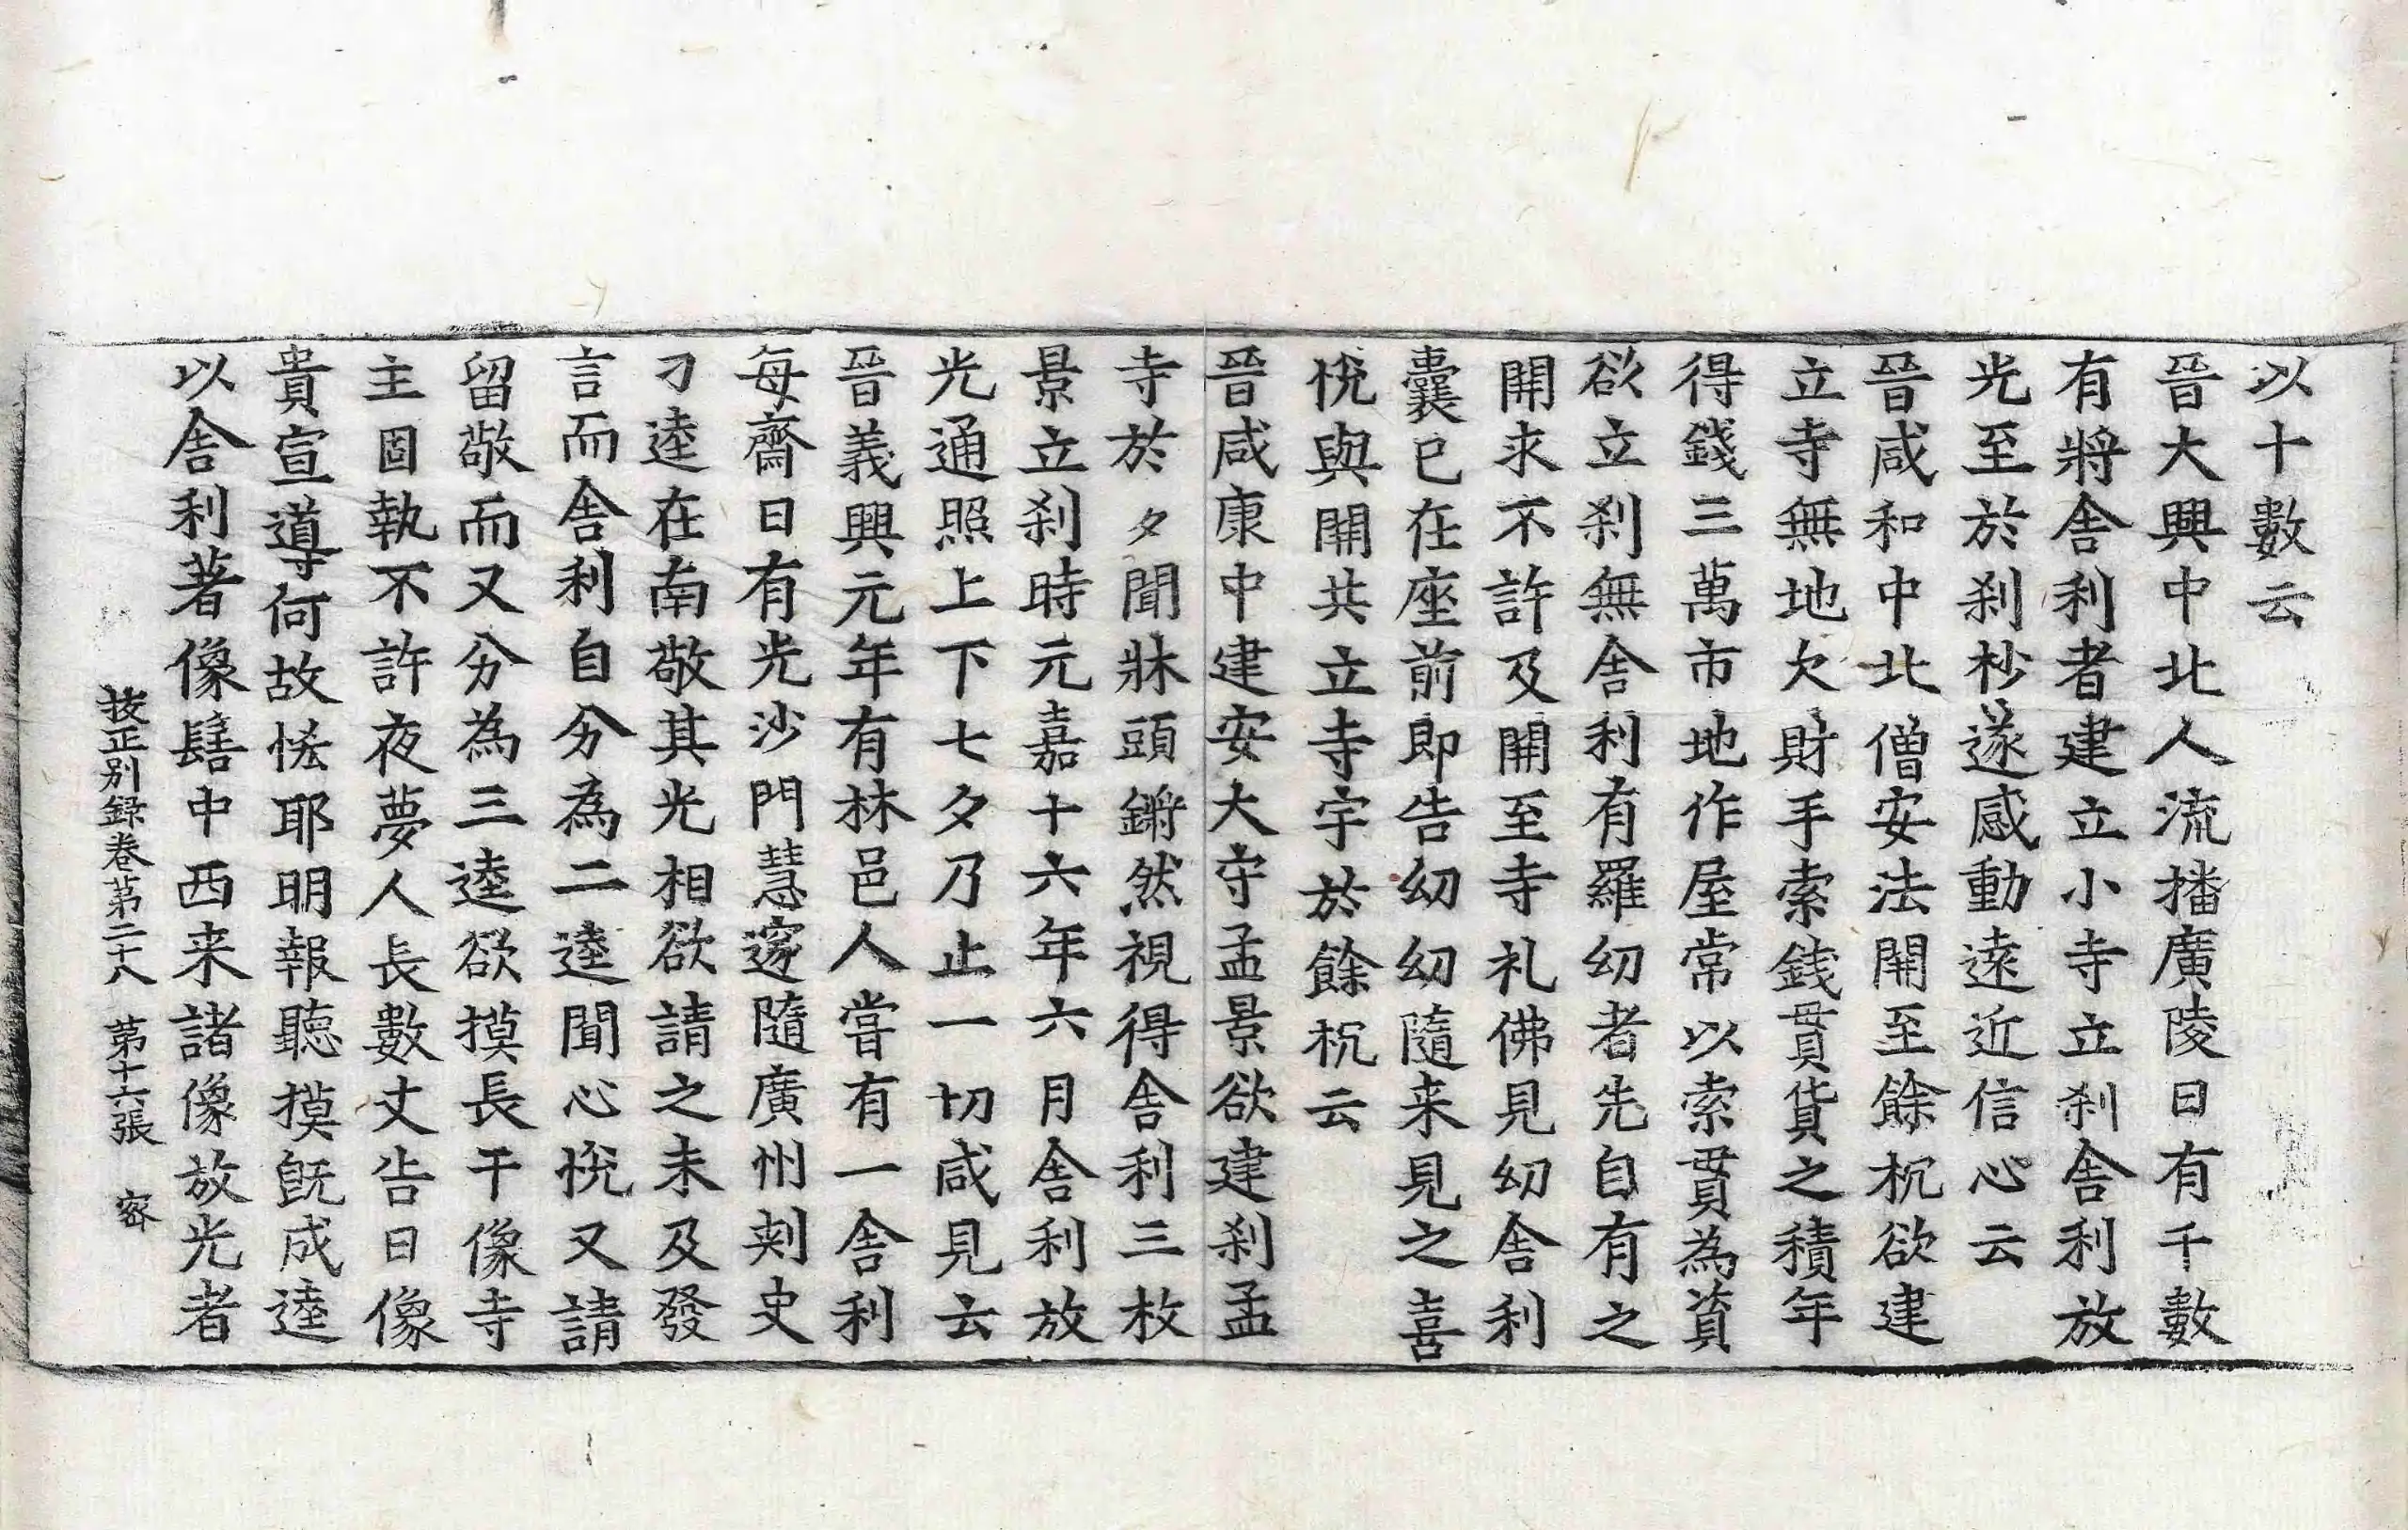 以十數云
晉大興中北人流播廣陵日有千數
有將舎利者建立小寺立刹舎利放
光至於刹杪遂感動遠近信心云
晉咸和中北僧安法開至餘杭欲建
立寺無地欠財手索錢貫貨之積年
得錢三萬市地作屋常以索貫為資
欲立刹無舎利有羅幼者先自有之
開求不許及開至寺礼佛見幼舎利
囊已在座前即告幼幼隨来見之喜
悅與開共立寺宇於餘杭云
晉咸康中建安太守孟景欲建刹孟
寺於夕聞牀頭鏘然視得舎利三枚
景立刹時元嘉十六年六月舎利放
光通照上下七夕乃止一切咸見云
晉義興元年有林邑人嘗有一舎利
每齋日有光沙門慧邃隨廣州刾史
刁逵在南敬其光相欲請之未及發
言而舎利自分為二逵聞心悅又請
留敬而又分為三逵欲摸長干像寺
主固執不許夜夢人長數丈告曰像
貴宣導何故恡耶明報聽摸旣成逵
以舎利著像髻中西来諸像放光者
挍正别録卷苐二十八　苐十六張　密